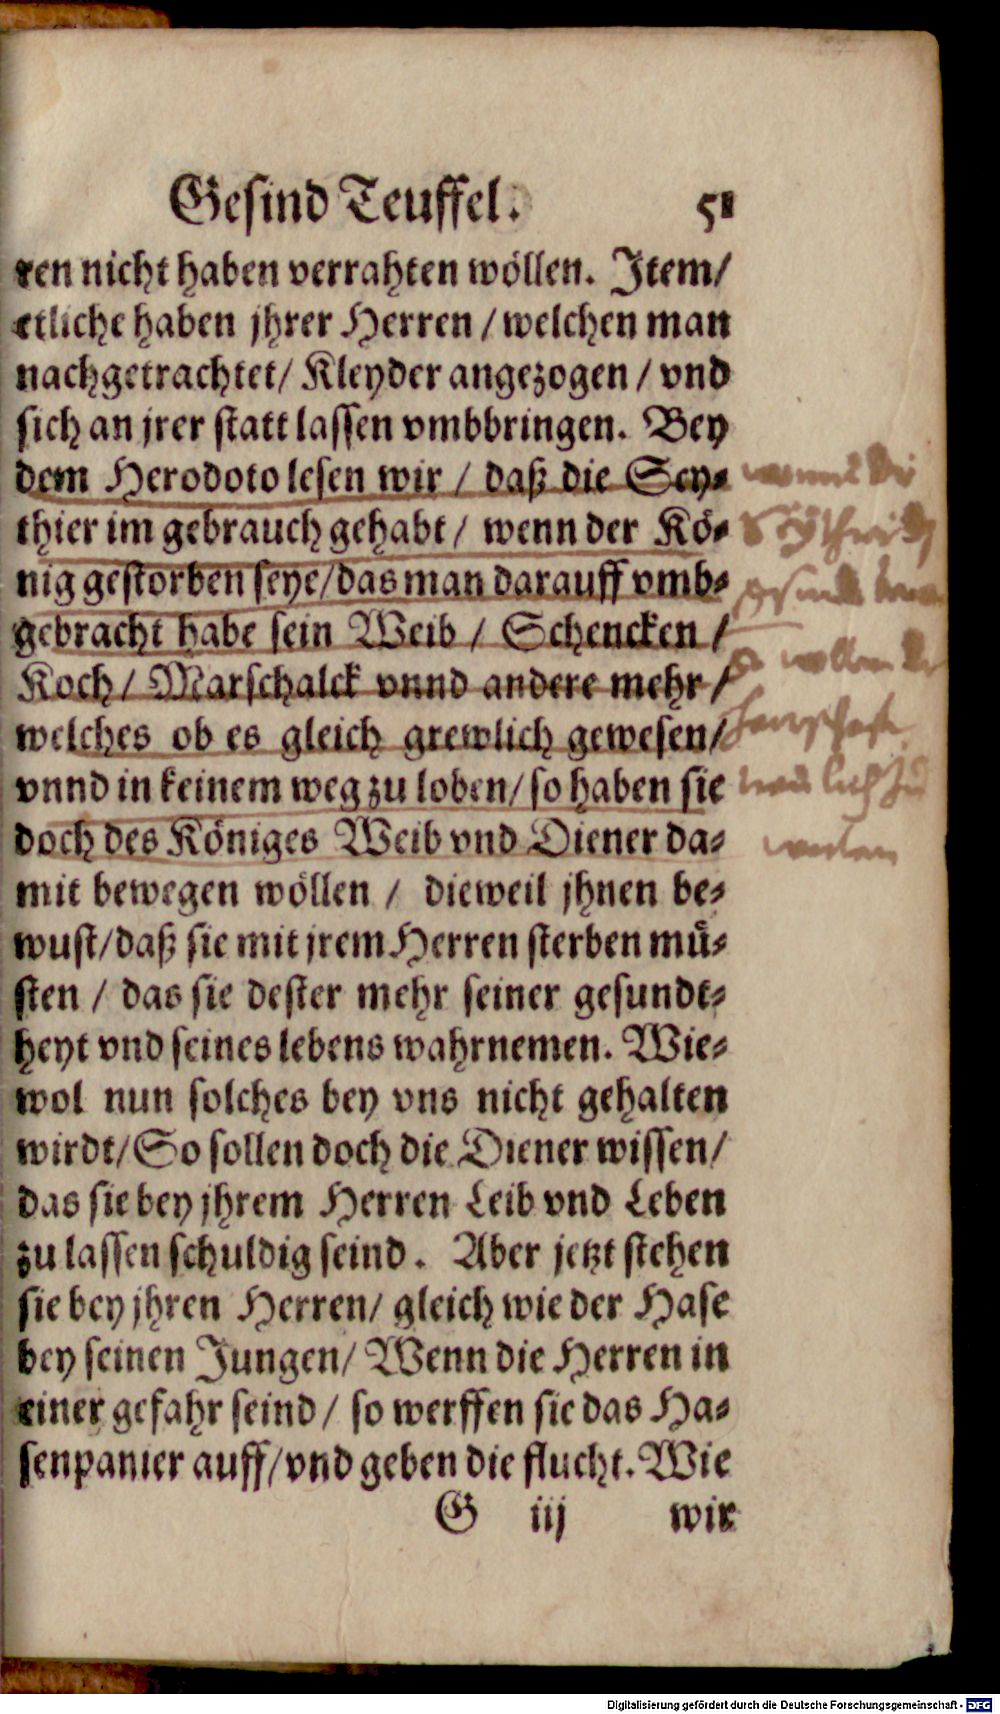 Gesind Teuffel. 51
ren nicht haben verrahten wöllen. Item/
etliche haben jhrer Herren / welchen man
nachgetrachtet/ Kleyder angezogen / vnd
sich an jrer statt lassen vmbbringen. Bey
dem Herodoto lesen wir / daß die Scy-
thier im gebrauch gehabt / wenn der Kö-
nig gestorben seye/das man darauff vmb-
gebracht habe sein Weib / Schencken /
Koch / Marschalck vnnd andere mehr /
welches ob es gleich grewlich gewesen/
vnnd in keinem weg zu loben/ so haben sie
doch des Königes Weib vnd Diener da-
mit bewegen wöllen / dieweil jhnen be-
wust/daß sie mit jrem Herren sterben mü-
sten / das sie dester mehr seiner gesundt-
heyt vnd seines lebens wahrnemen. Wie-
wol nun solches bey vns nicht gehalten
wirdt/So sollen doch die Diener wissen/
das sie bey jhrem Herren Leib vnd Leben
zu lassen schuldig seind. Aber jetzt stehen
sie bey jhren Herren/ gleich wie der Hase
bey seinen Jungen/ Wenn die Herren in
einer gefahr seind / so werffen sie das Ha-
senpanier auff/vnd geben die flucht. Wie
G iij wir
Digitalisierung gefördert durch die Deutsche Forschungsgemeinschaft - DFG